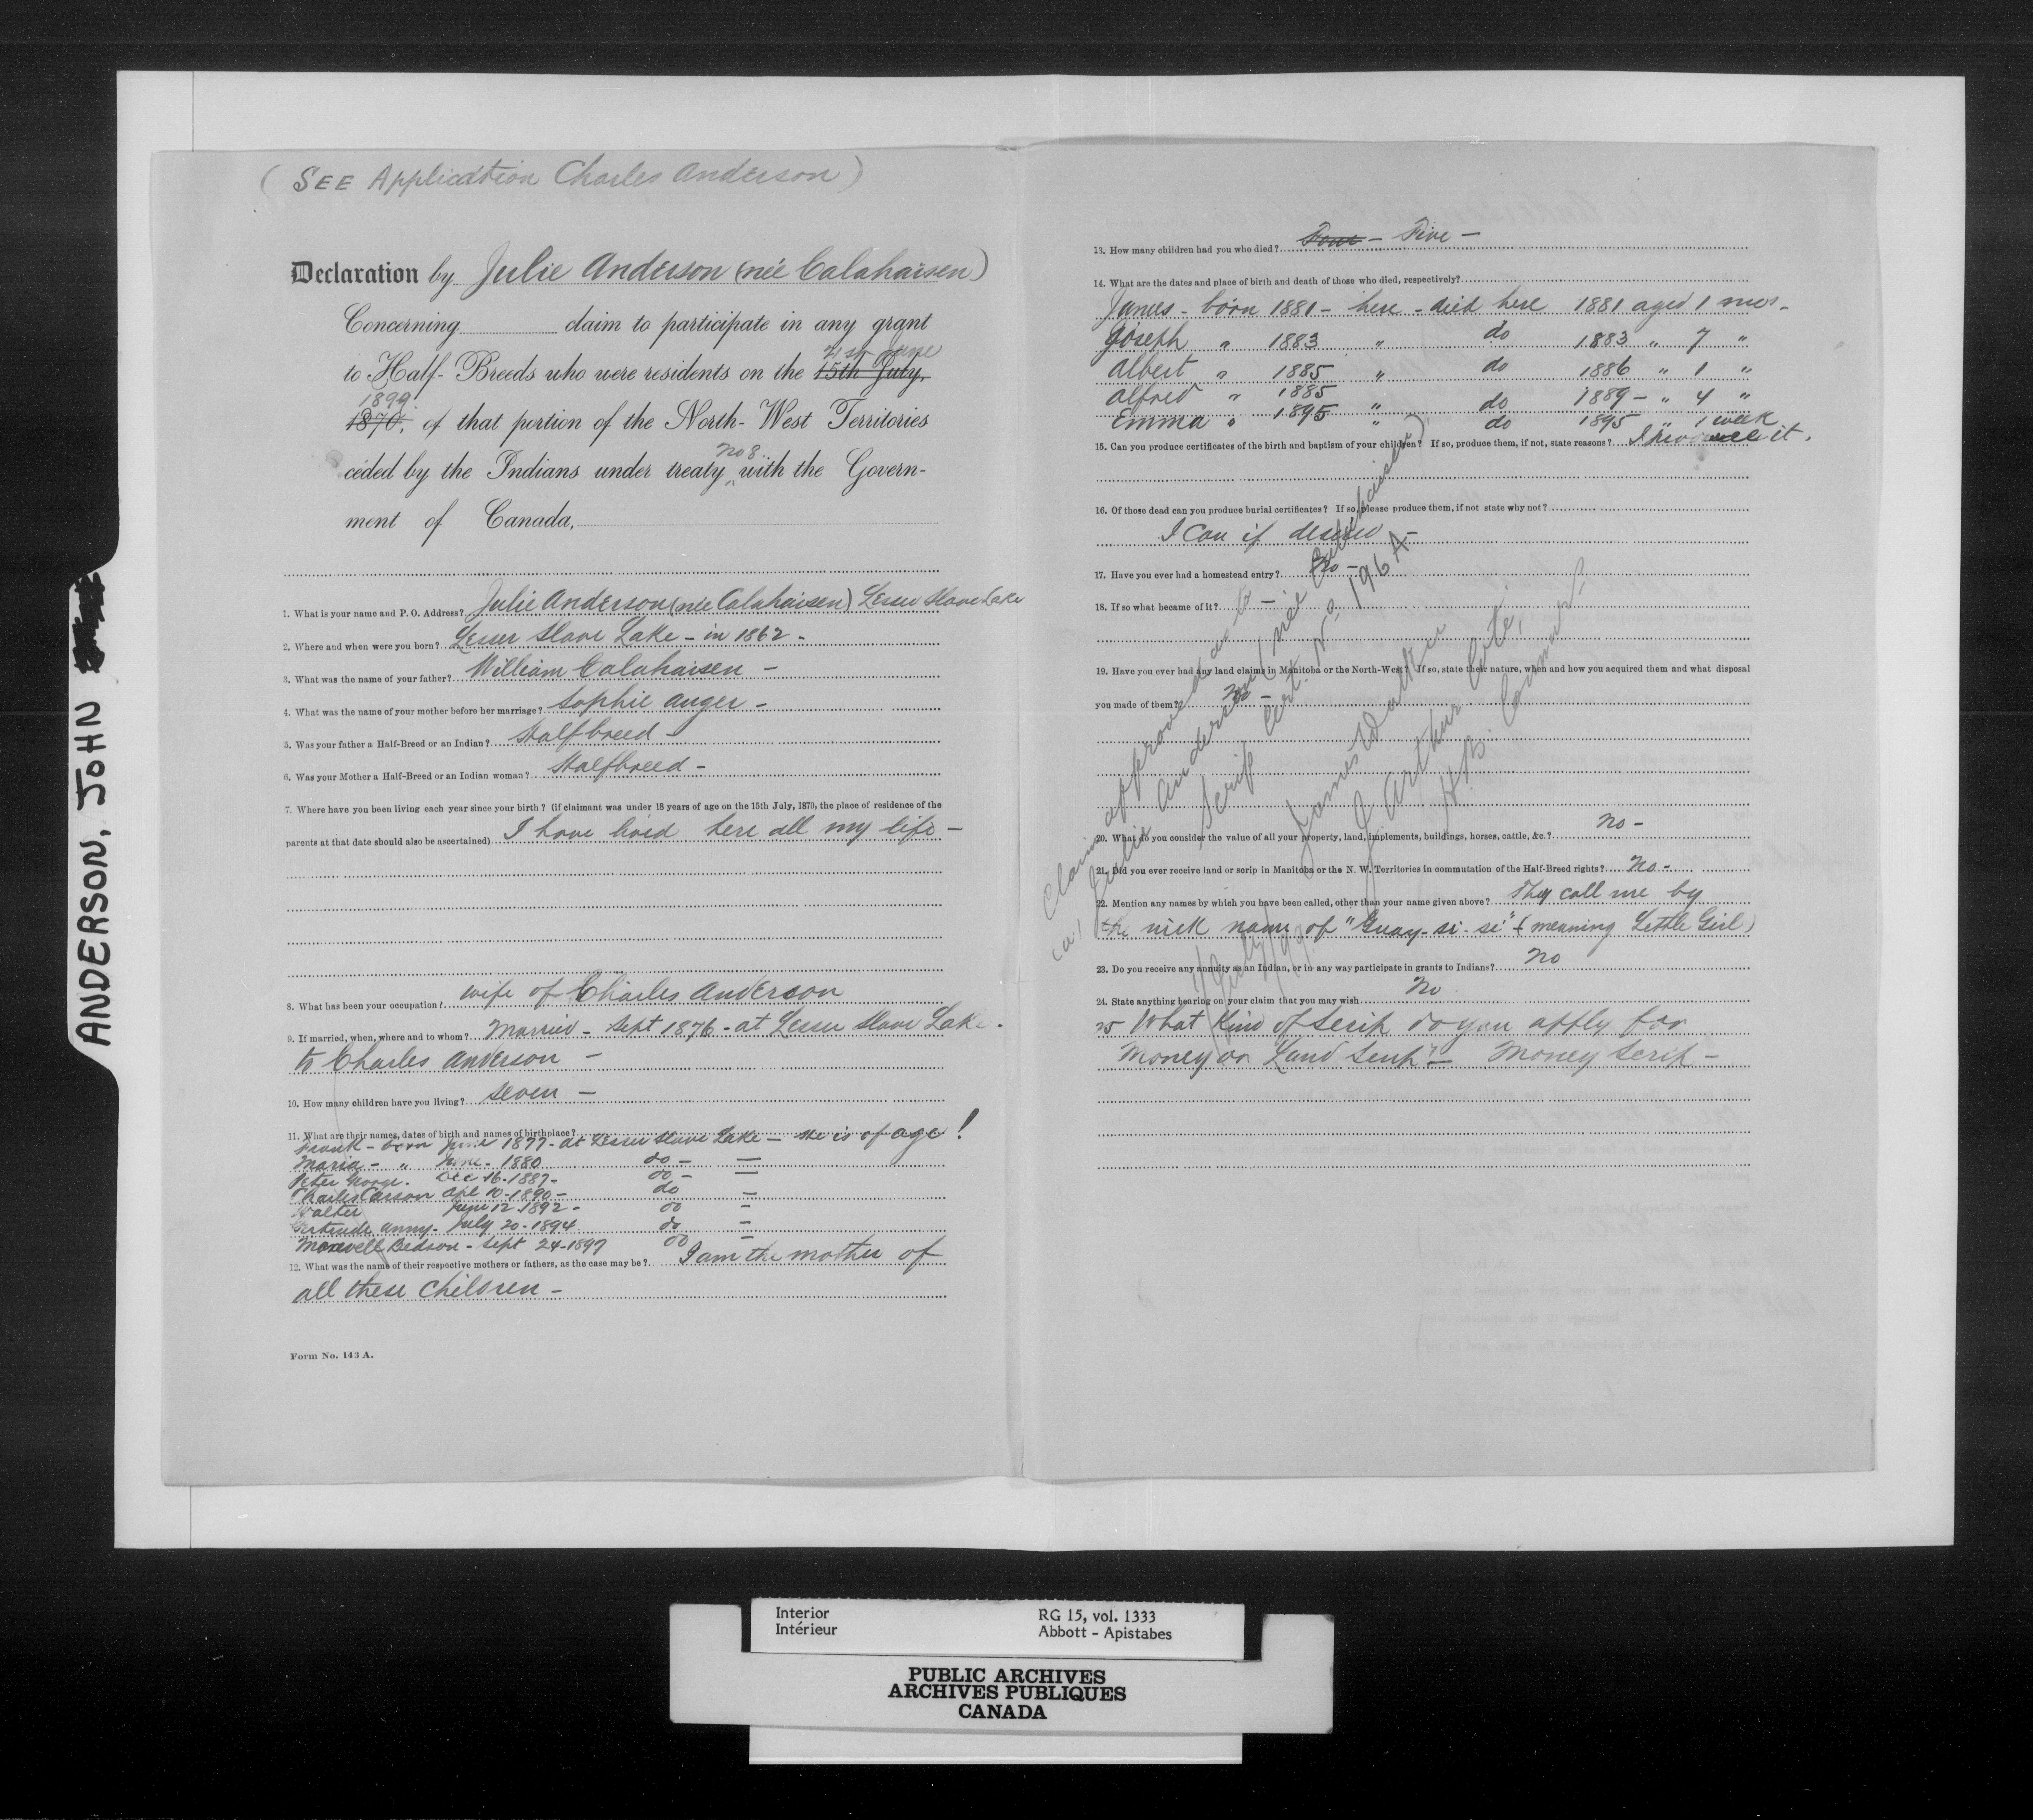 ANDERSON, JOHN
(SEE Application Charles Anderson)
Declaration by Julie Anderson (née Calahaisen)
Concerning claim to participate in any grant
21st June
to Half-Breeds who were residents on the 15th July,
1899
1870, of that portion of the North-West Territories
No 8
ceded by the Indians under treaty with the Govern-
ment of Canada,
1. What is your name and P. O. Address? Julie Anderson (née Calahaisen) Lesser Slave Lake
2. Where and when were you born? Lesser Slave Lake - in 1862 -
3. What was the name of your father? William Calahaisen -
4. What was the name of your mother before her marriage? Sophie Auger -
5. Was your father a Half-Breed or an Indian? Halfbreed -
6. Was your Mother a Half-Breed or an Indian woman? Halfbreed -
7. Where have you been living each year since your birth? (if claimant was under 18 years of age on the 15th July, 1870, the place of residence of the
parents at that date should also be ascertained) I have lived here all my life -
8. What has been your occupation? wife of Charles Anderson
9. If married, when, where and to whom? Married - Sept 1876 - at Lesser Slave Lake -
to Charles Anderson -
10. How many children have you living? seven -
11. What are their names, dates of birth and names of birthplace?
Frank - born June 1877 - at Lesser Slave Lake - He is of age!
Maria - " June - 1880 do - -
Peter George. Dec 16 - 1887 - do - -
Charles Carson Apl 10 - 1890 - do -
Walter June 12 - 1892 - do -
Gertrude Anny - July 20 - 1894 do -
Maxwell Bedson - Sept 24 - 1897 do -
12. What was the name of their respective mothers or fathers, as the case may be? I am the mother of
all these children -
Form No. 143 A.
13. How many children had you who died? Four - Five -
14. What are the dates and place of birth and death of those who died, respectively?
James - born 1881 - here - died here 1881 aged 1 mos -
Joseph " 1883 " do 1883 " 7 "
Albert " 1885 " do 1886 " 1 "
Alfred " 1885 " do 1889 - " 4 "
Emma " 1895 " do 1895 " 1 week
15. Can you produce certificates of the birth and baptism of your children? If so, produce them, if not, state reasons? I produce it.
16. Of those dead can you produce burial certificates? If so, please produce them, if not state why not?
I can if desired -
17. Have you ever had a homestead entry? No -
18. If so what became of it? -
19. Have you ever had any land claims in Manitoba or the North-West? If so, state their nature, when and how you acquired them and what disposal
you made of them? No -
20. What do you consider the value of all your property, land, implements, buildings, horses, cattle, &c.? No -
21. Did you ever receive land or scrip in Manitoba or the N. W. Territories in commutation of the Half-Breed rights? No -
22. Mention any names by which you have been called, other than your name given above? They call me by
the nick name of "Guay-si-si" (meaning Little Girl)
23. Do you receive any annuity as an Indian, or in any way participate in grants to Indians? No
24. State anything bearing on your claim that you may wish No
25 What kind of Scrip do you apply for
Money or Land Scrip? - Money Scrip -
Claim approved as to
Julie Anderson (née Calahaisen)
Scrip Cert. No. 196 A
James Walker
J. Arthur Coté,
H.B. Commrs.
Interior
Intérieur
RG 15, vol. 1333
Abbott - Apistabes
PUBLIC ARCHIVES
ARCHIVES PUBLIQUES
CANADA